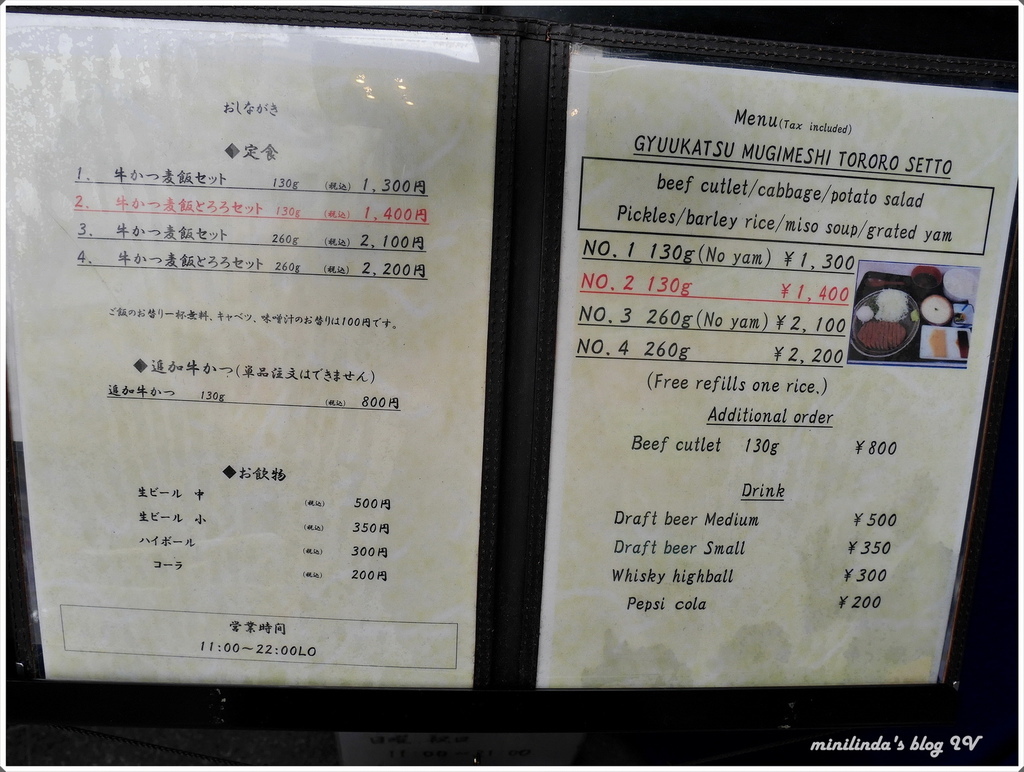 おしながき
◆定食
1. 牛かつ麦飯セット 130g (税込) 1,300円
2. 牛かつ麦飯とろろセット 130g (税込) 1,400円
3. 牛かつ麦飯セット 260g (税込) 2,100円
4. 牛かつ麦飯とろろセット 260g (税込) 2,200円
ご飯のお替り一杯無料、キャベツ、味噌汁のお替りは100円です。
◆追加牛かつ(単品注文はできません)
追加牛かつ 130g (税込) 800円
◆お飲物
生ビール 中 (税込) 500円
生ビール 小 (税込) 350円
ハイボール (税込) 300円
コーラ (税込) 200円
営業時間
11:00～22:00LO
Menu(Tax included)
GYUUKATSU MUGIMESHI TORORO SETTO
beef cutlet/cabbage/potato salad
Pickles/barley rice/miso soup/grated yam
NO.1 130g(No yam) ¥1,300
NO.2 130g ¥1,400
NO.3 260g(No yam) ¥2,100
NO.4 260g ¥2,200
(Free refills one rice.)
Additional order
Beef cutlet 130g ¥800
Drink
Draft beer Medium ¥500
Draft beer Small ¥350
Whisky highball ¥300
Pepsi cola ¥200
minilinda's blog IV